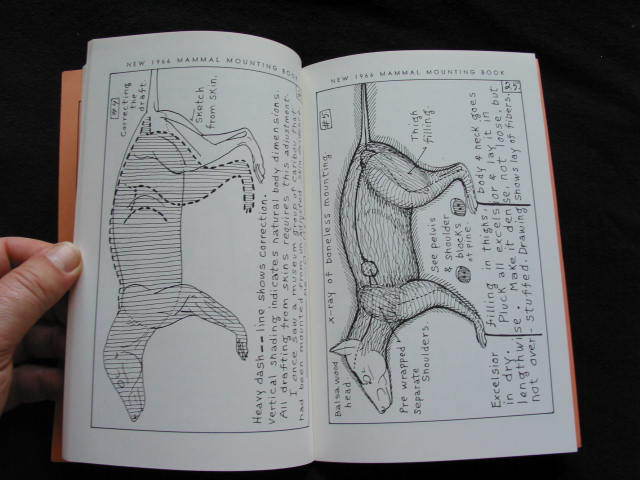 NEW 1966 MAMMAL MOUNTING BOOK
#4
Correcting
the
draft.
Sketch
from skin.
Heavy dash -- line shows correction.
Vertical shading indicates natural body dimensions.
All drafting from skins requires this adjustment.
I once saw a museum group of caribou that
had been mounted from
NEW 1966 MAMMAL MOUNTING BOOK
25
#5.
x-ray of boneless mounting
Thigh
filling.
Balsa wood
head.
Pre wrapped
separate
shoulders.
See pelvis
& shoulder
blocks
of pine.
Excelsior filling in thighs, body & neck goes
in dry. Pluck all excelsior & lay it in
lengthwise. Make it dense, not loose, but
not over-stuffed. Drawing shows lay of fibers.